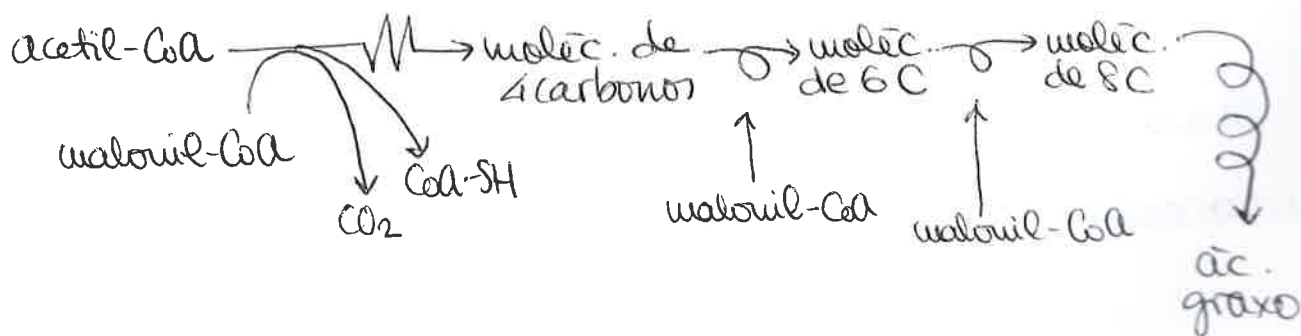 acetil-CoA
moléc. de
4 carbonos
moléc.
de 6C
moléc.
de 8C
malonil-CoA
CoA-SH
CO2
malonil-CoA
malonil-CoA
ác.
graxo